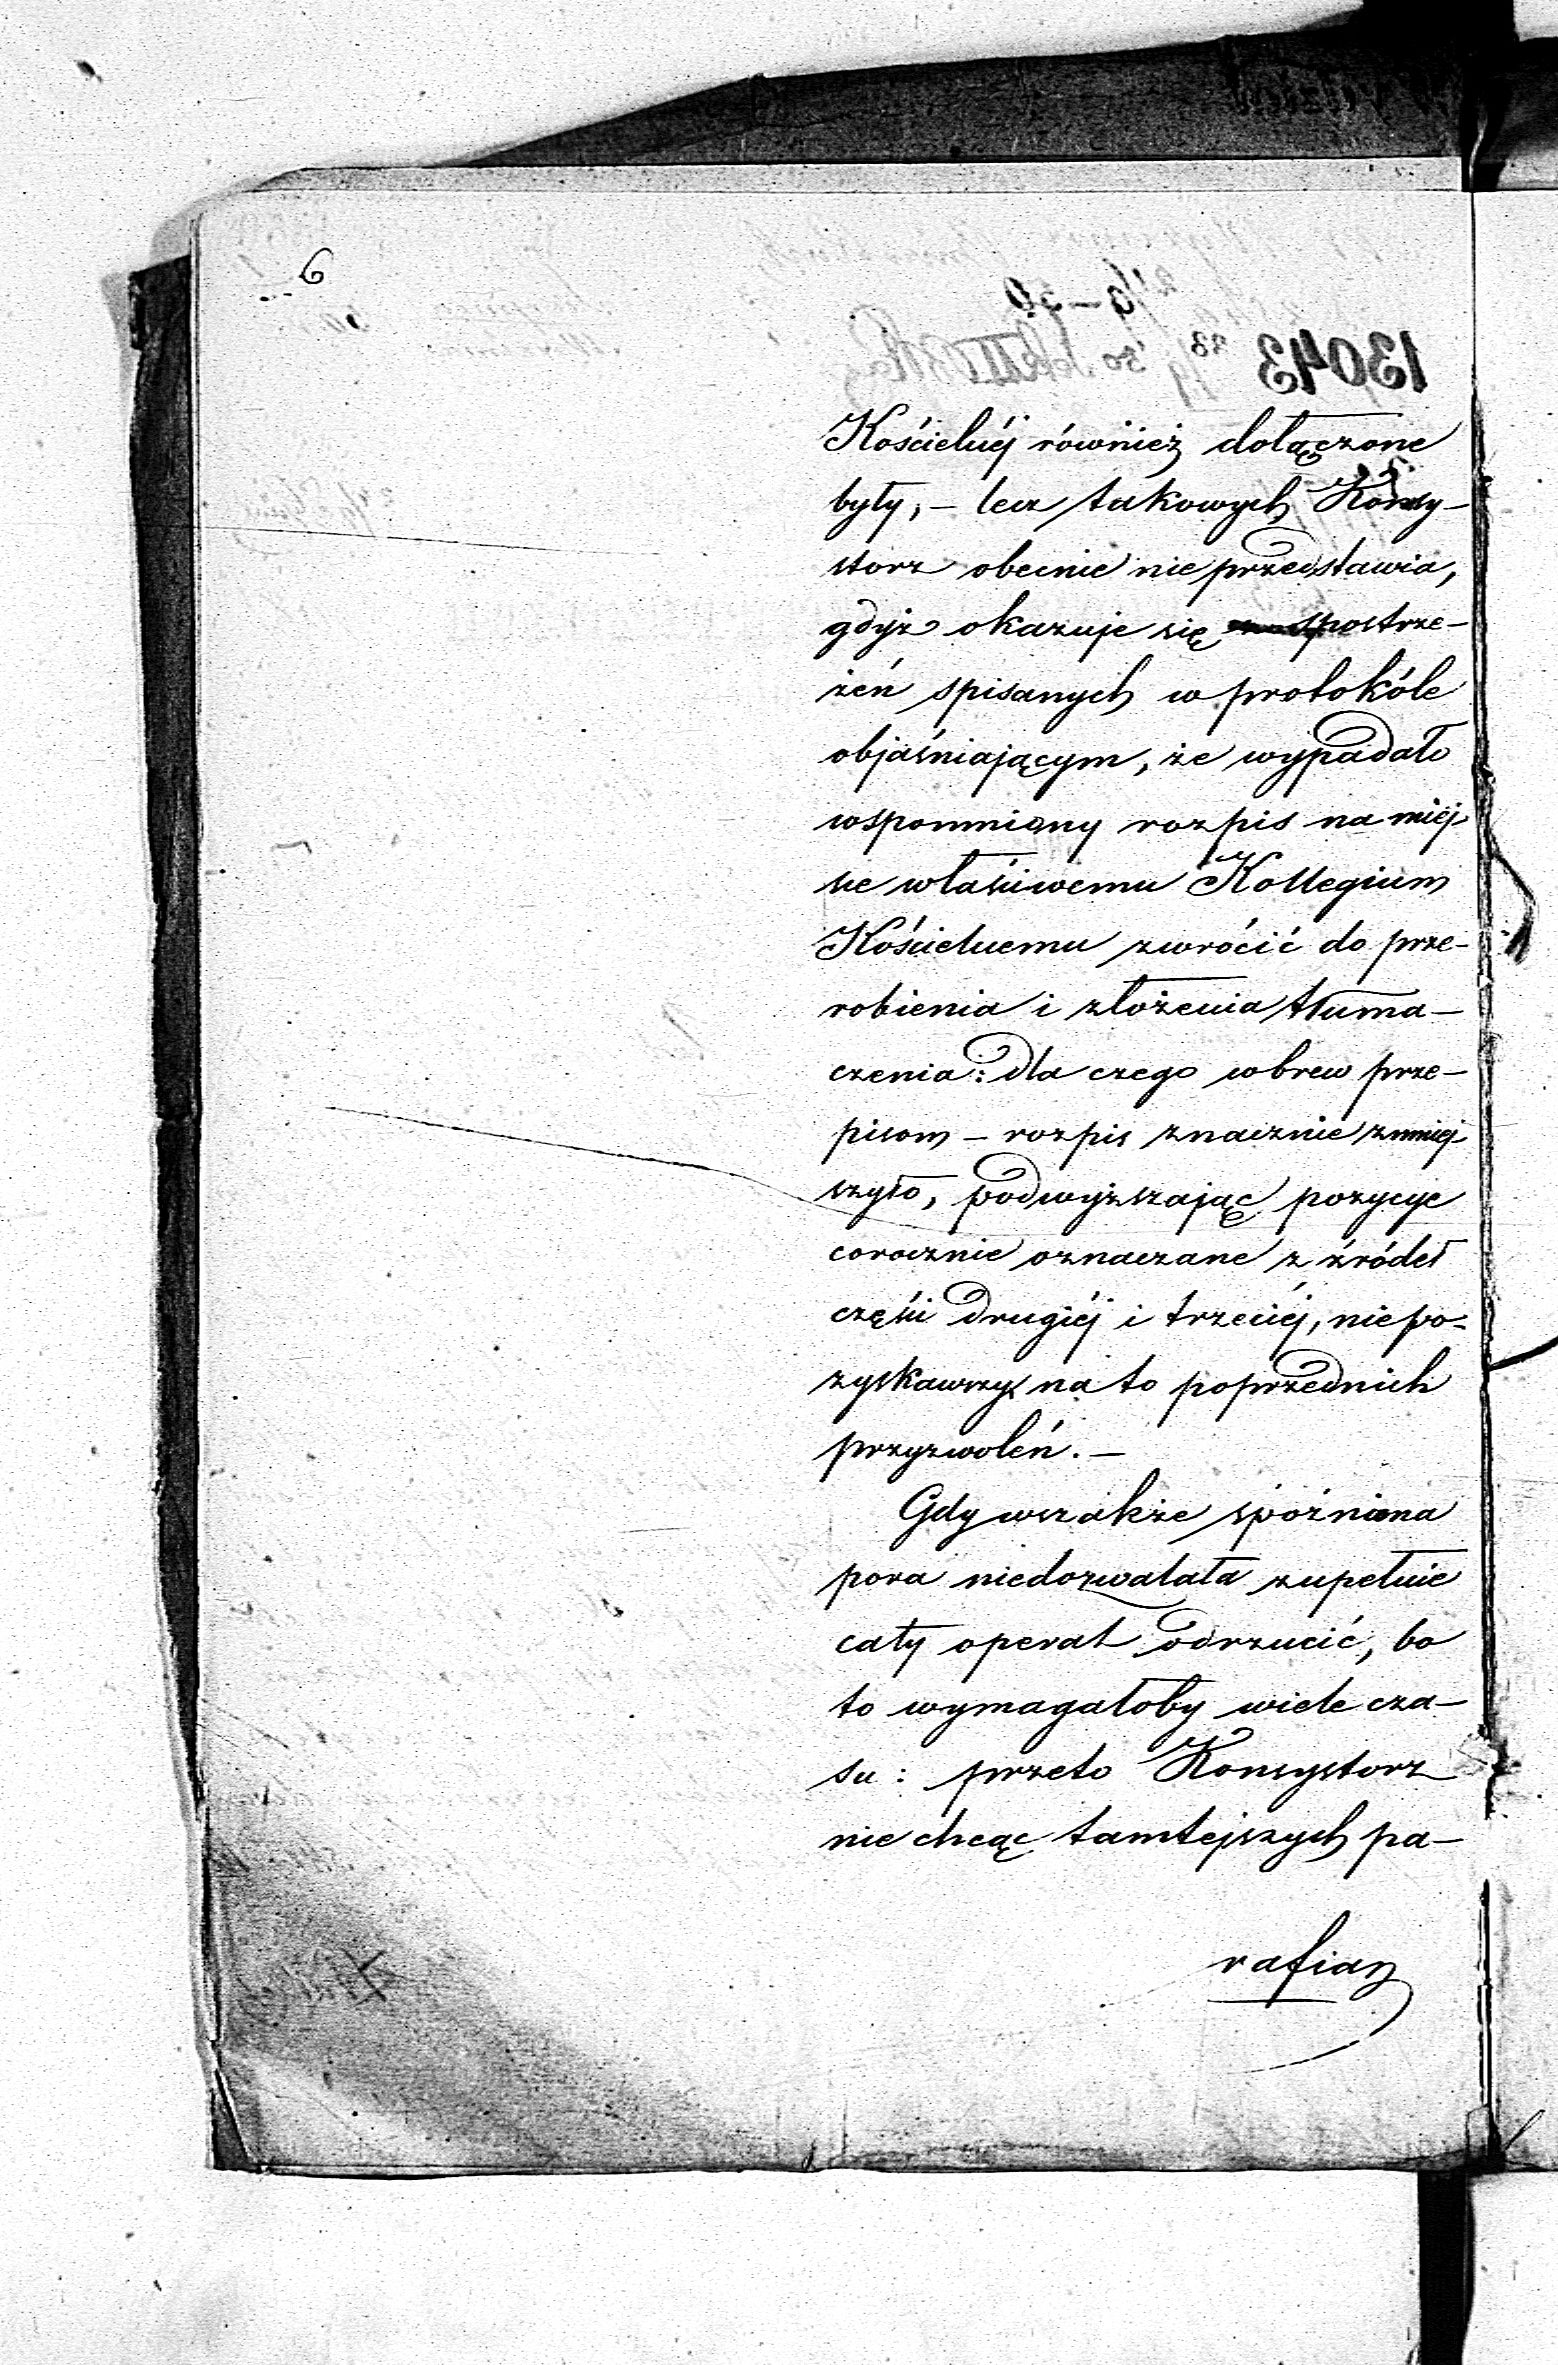 6
13043
Kościelnéj również dołączone
były, – lecz takowych Konsy–
storz obecnie nie przedstawia,
gdyż okazuje się spostrze–
żeń spisanych w protokóle
objaśniającym, że wypadało
wspomniony rozpis na miej
sce właściwemu Kollegium
Kościelnemu zwrócić do prze–
robienia i złożenia tłuma–
czenia: dla czego wbrew prze–
pisom – rozpis znacznie zmniej
szyło, podwyższając pozycye
corocznie oznaczane z źródeł
części drugiéj i trzeciéj, nie po–
zyskawszy na to poprzednich
przyzwoleń. –
Gdy wszakże spóźniona
pora niedozwalała zupełnie
cały operat odrzucić, bo
to wymagałoby wiele cza–
su: przeto Konsystorz
nie chcąc tamtejszych pa–
rafian